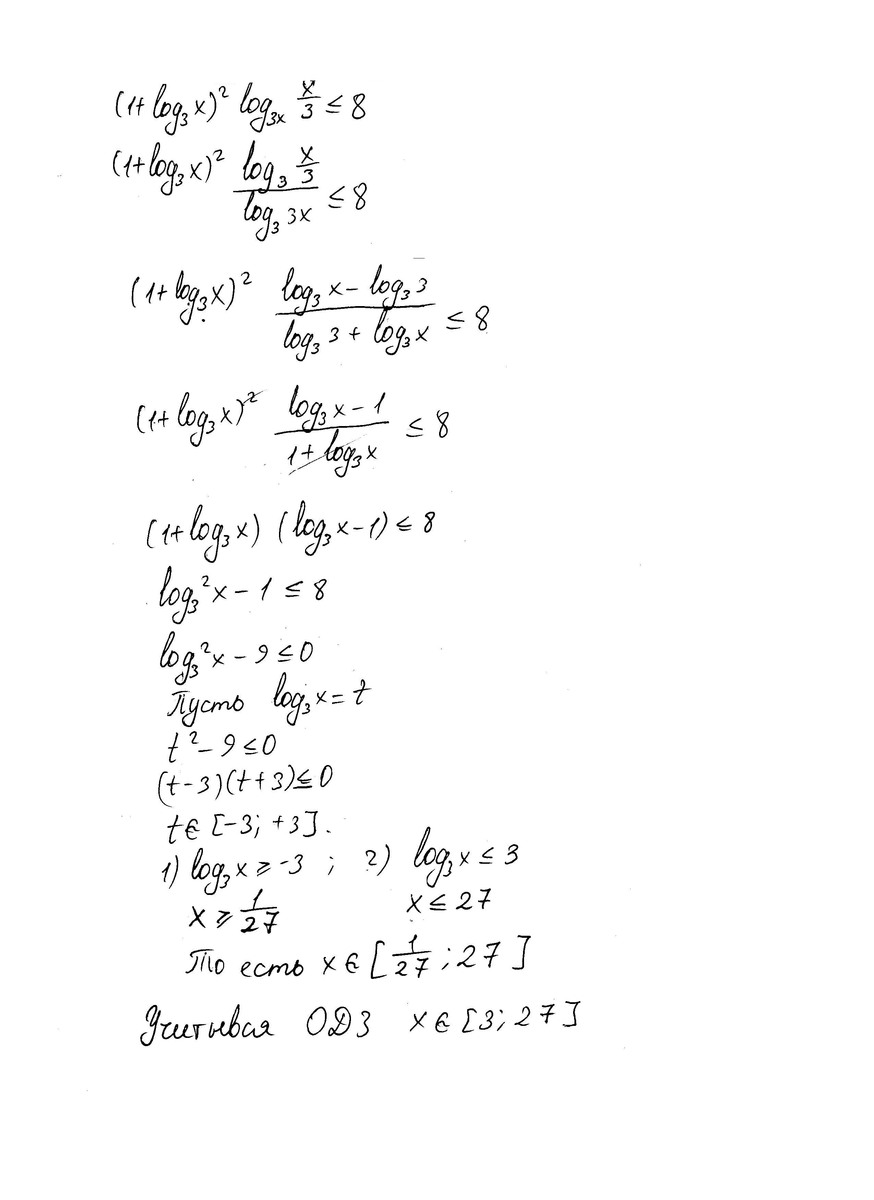 (1+log₃x)² log₃ₓ x/3 ≤ 8
(1+log₃x)² (log₃ x/3)/(log₃ 3x) ≤ 8
(1+log₃x)² (log₃x − log₃3)/(log₃3 + log₃x) ≤ 8
(1+log₃x)² (log₃x − 1)/(1+log₃x) ≤ 8
(1+log₃x) (log₃x−1) ≤ 8
log₃²x − 1 ≤ 8
log₃²x − 9 ≤ 0
Пусть log₃x = t
t² − 9 ≤ 0
(t−3)(t+3) ≤ 0
t ∈ [−3; +3].
1) log₃x ⩾ −3 ; 2) log₃x ≤ 3
x ⩾ 1/27 x ≤ 27
То есть x ∈ [1/27; 27]
Учитывая ОДЗ x ∈ [3; 27]